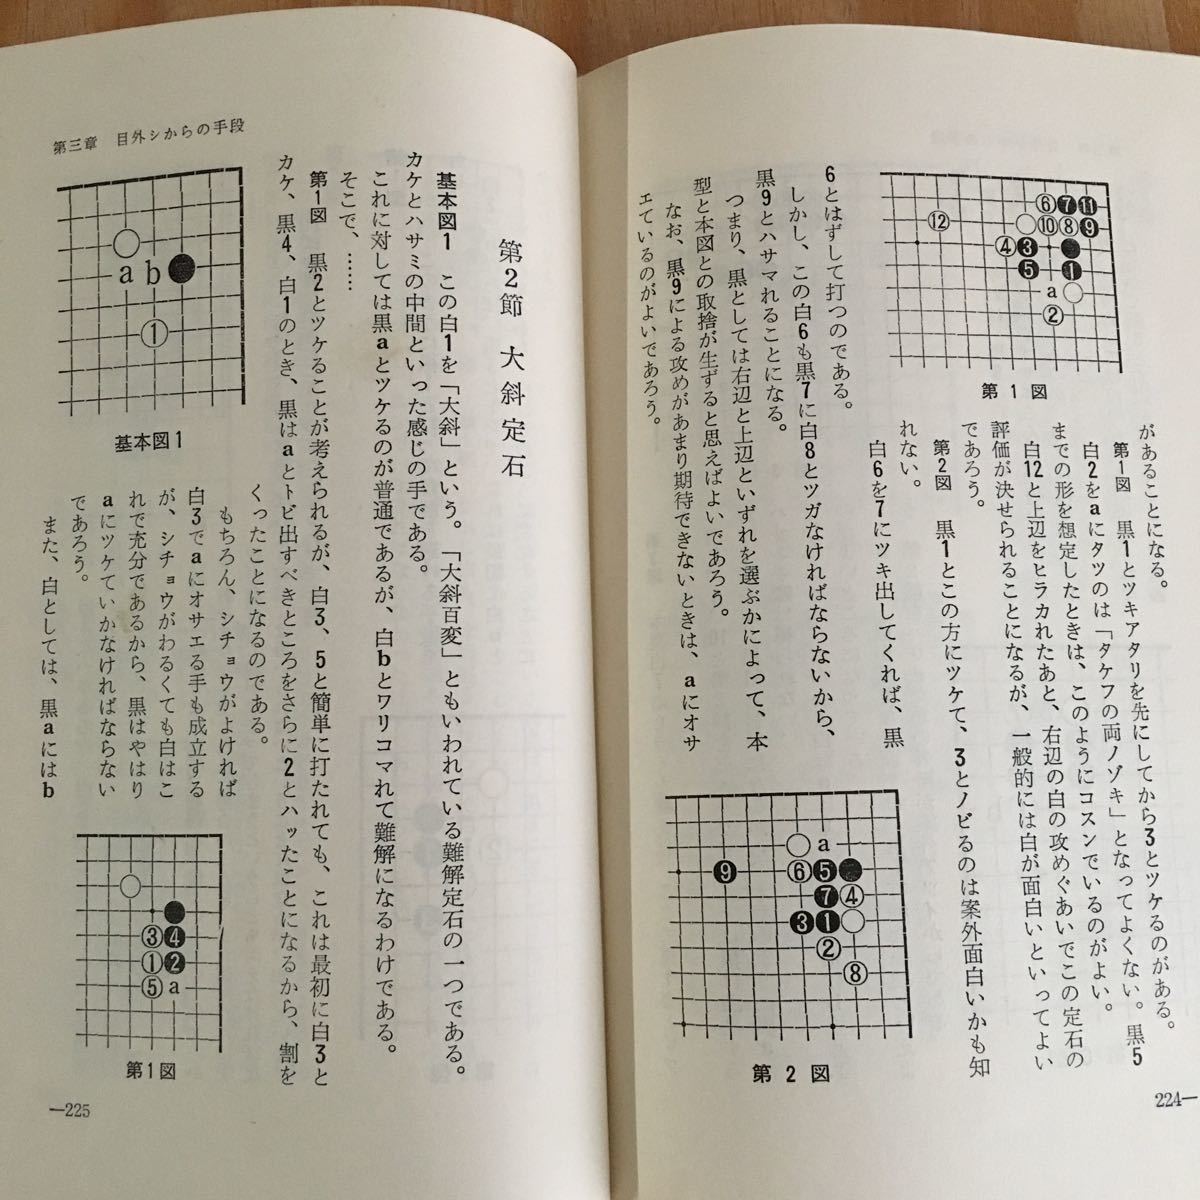 ⑥❼⓫
⑫⑩⑧❾
④❸
❺❶
a
②
第1図
があることになる。
第1図　黒1とツキアタリを先にしてから3とツケるのがある。
白2をaにタツのは「タケフの両ノゾキ」となってよくない。黒5
までの形を想定したときは、このようにコスンでいるのがよい。
白12と上辺をヒラカれたあと、右辺の白の攻めぐあいでこの定石の
評価が決せられることになるが、一般的には白が面白いといってよい
であろう。
第2図　黒1とこの方にツケて、3とノビるのは案外面白いかも知
れない。
白6を7にツキ出してくれば、黒
6とはずして打つのである。
しかし、この白6も黒7に白8とツガなければならないから、
黒9とハサマれることになる。
つまり、黒としては右辺と上辺といずれを選ぶかによって、本
型と本図との取捨が生ずると思えばよいであろう。
なお、黒9による攻めがあまり期待できないときは、aにオサ
エているのがよいであろう。
a
❾⑥❺
❼④
❸❶
②
⑧
第2図
224—
第三章　目外シからの手段
第2節　大斜定石
基本図1　この白1を「大斜」という。「大斜百変」ともいわれている難解定石の一つである。
カケとハサミの中間といった感じの手である。
これに対しては黒aとツケるのが普通であるが、白bとワリコマれて難解になるわけである。
そこで、……
第1図　黒2とツケることが考えられるが、白3、5と簡単に打たれても、これは最初に白3と
カケ、黒4、白1のとき、黒はaとトビ出すべきところをさらに2とハッたことになるから、割を
くったことになるのである。
もちろん、シチョウがよければ
白3でaにオサエる手も成立する
が、シチョウがわるくても白はこ
れで充分であるから、黒はやはり
aにツケていかなければならない
であろう。
また、白としては、黒aにはb
a b
①
基本図1
③❹
①❷
⑤a
第1図
—225